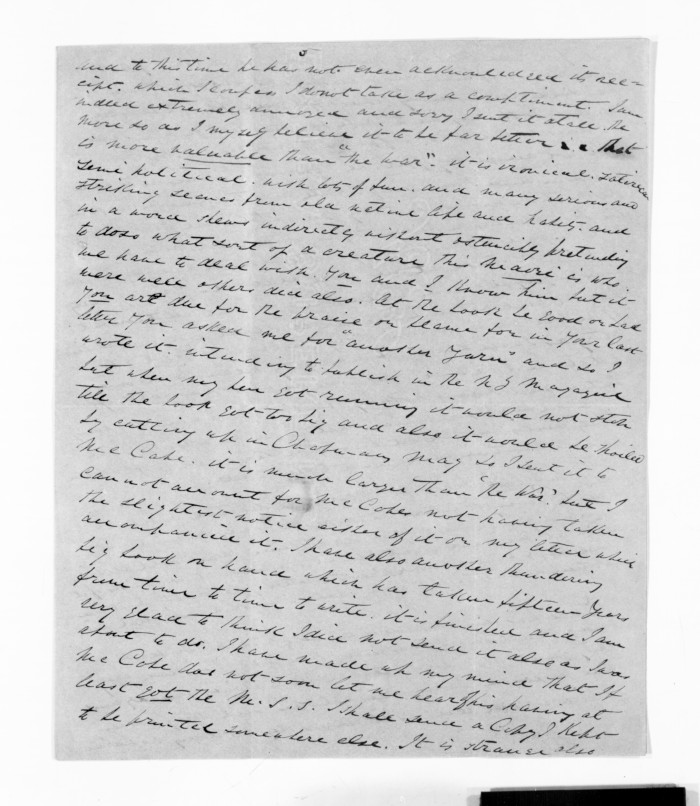 5
and to this time he has not even acknowledged its rec-
cipt. which I confess I do not take as a compliment. I am
indeed extremely annoyed and sorry I sent it at all. the
more so as I myself believe it to be far better that
is more valuable than "the War". it is ironical. satirical
semi political. with lots of fun. and many serious and
striking scenes from old native life and habits. and
in a word shews indirectly without ostensibly pretending
to do so what sort of a creature this Maori is who
we have to deal with. You and I know him but it
were well others did also. At the book be good or bad
You are due for the praise or blame for in your last
letter You asked me for "another Yarn" and so I
wrote it. intending to publish in the N Z Magazine
but when my pen got running it would not stop
till the book got too big and also it would be spoiled
by cutting up in Chapmans Mag so I sent it to
McCabe. it is much larger than "the War". but I
cannot account for McCabes not having taken
the slightest notice either of it or my letter which
accompanied it. I have also another thundering
big book on hand which has taken fifteen Years
from time to time to write. it is finished and I am
very glad to think I did not send it also as I was
about to do. I have made up my mind that if
McCabe does not soon let me hear of his having at
least got the M.S.S. I shall send a Copy I kept
to be printed somewhere else. It is strange also